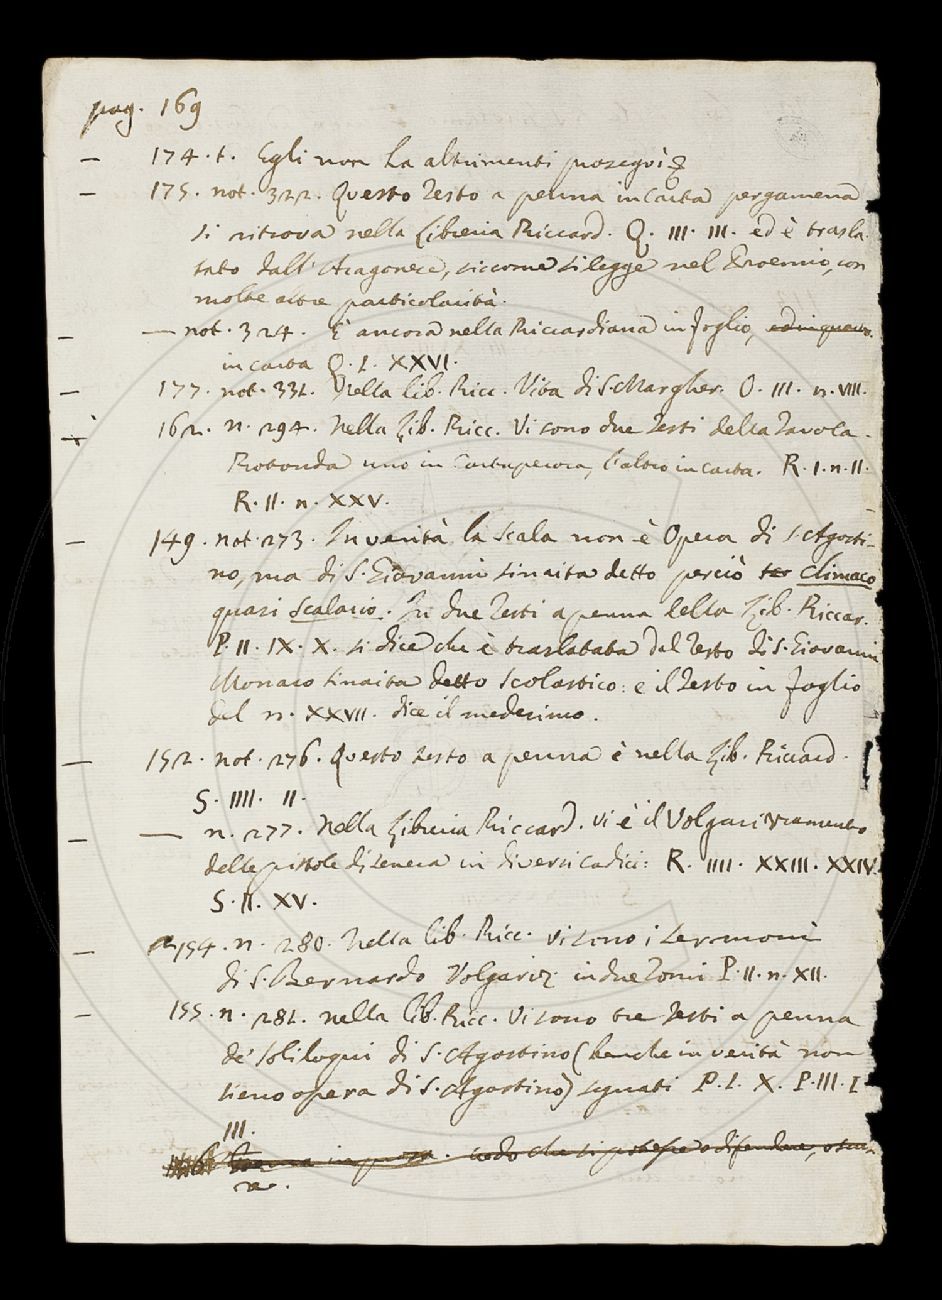 pag. 169
— 174. t. Egli non ha altrimenti prosegui
— 175. not. 322. Questo Testo a penna in Carta pergamena
si ritrova nella Libreria Riccard. Q. III. III. ed è trasla
tato dall' Aragonese, siccome si legge nel Proemio, con
molte altre particolarità.
— — not. 324. È ancora nella Riccardiana in foglio,
in carta Q. I. XXVI.
— 177. not. 331. Nella Lib. Ricc. Vita di S. Margher. O. III. n. VIII.
162. n. 294. Nella Lib. Ricc. Vi sono due Testi della Tavola
Rotonda uno in Cartapecora, l'altro in carta. R. I. n. II.
R. II. n. XXV.
— 149. not. 273. In verità la Scala non è Opera di S. Agosti-
no, ma di S. Giovanni Sinaita detto perciò Climaco
quasi Scalario. In due Testi a penna della Lib. Riccar.
P. II. IX. X. si dice che è traslatata dal Testo di S. Giovanni
Monaco Sinaita detto Scolastico: e il Testo in foglio
del n. XXVII. dice il medesimo.
— 152. not. 276. Questo testo a penna è nella Lib. Riccard.
S. IIII. II.
— — n. 277. Nella Libreria Riccard. vi è il Volgarizzamento
delle pistole di Seneca in diversi codici: R. IIII. XXIII. XXIV.
S. II. XV.
— 154. n. 280. Nella Lib. Ricc. vi sono i Sermoni
di S. Bernardo Volgariz. in due Tomi P. II. n. XII.
— 155. n. 281. nella Lib. Ricc. Vi sono tre Testi a penna
de' soliloqui di S. Agostino (benche in verità non
sieno opera di S. Agostino) segnati P. I. X. P. III. I
III.